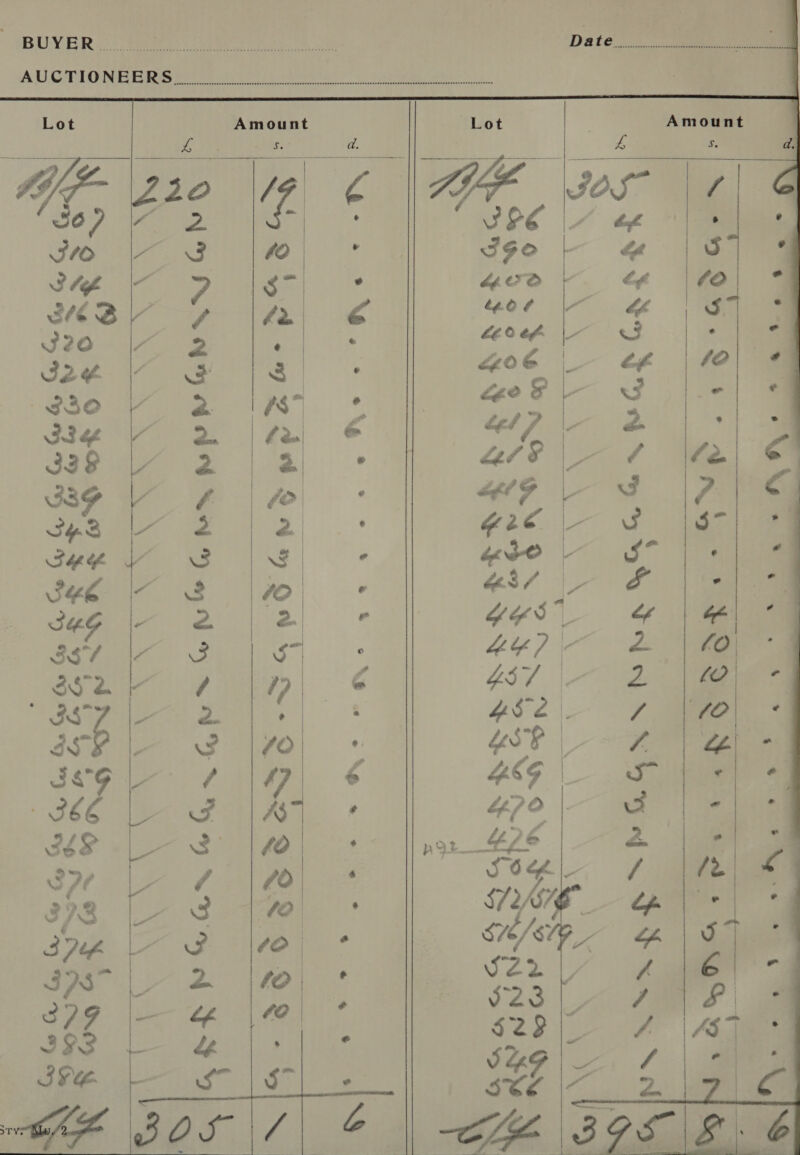 BUYER Date
AUCTIONEERS
Lot Amount Lot Amount
£ s. d. £ s. d.
B/F 220 19 6 B/F 305 1 6
307 2 5 · 386 4 · ·
310 3 10 · 390 4 5 ·
314 7 5 · 400 4 10 ·
316B 1 12 6 401 4 5 ·
320 2 · · 404 3 · ·
324 3 3 · 406 4 10 ·
330 2 15 · 408 3 - ·
334 2 12 6 417 2 · ·
338 2 2 · 418 1 12 6
339 1 10 · 419 3 7 6
343 2 2 · 426 3 5 ·
344 3 3 · 430 5 · ·
346 3 10 · 431 8 · ·
349 2 2 · 445 4 4 ·
351 3 5 · 447 2 10 ·
352 1 17 6 451 2 10 ·
357 2 · · 452 1 10 ·
358 3 10 · 458 1 4 ·
359 1 17 6 469 5 · ·
366 3 15 · 470 3 - ·
368 3 10 · 476 2 · ·
371 1 10 · 504 1 12 6
373 3 10 · 512/515 4 · ·
374 3 10 · 516/519 4 5 ·
375 2 10 · 522 1 6 ·
379 4 10 · 523 1 8 ·
383 4 · · 528 1 15 ·
384 5 5 · 549 1 · ·
566 2 7 6
C/F 305 1 6 C/F 395 8 6